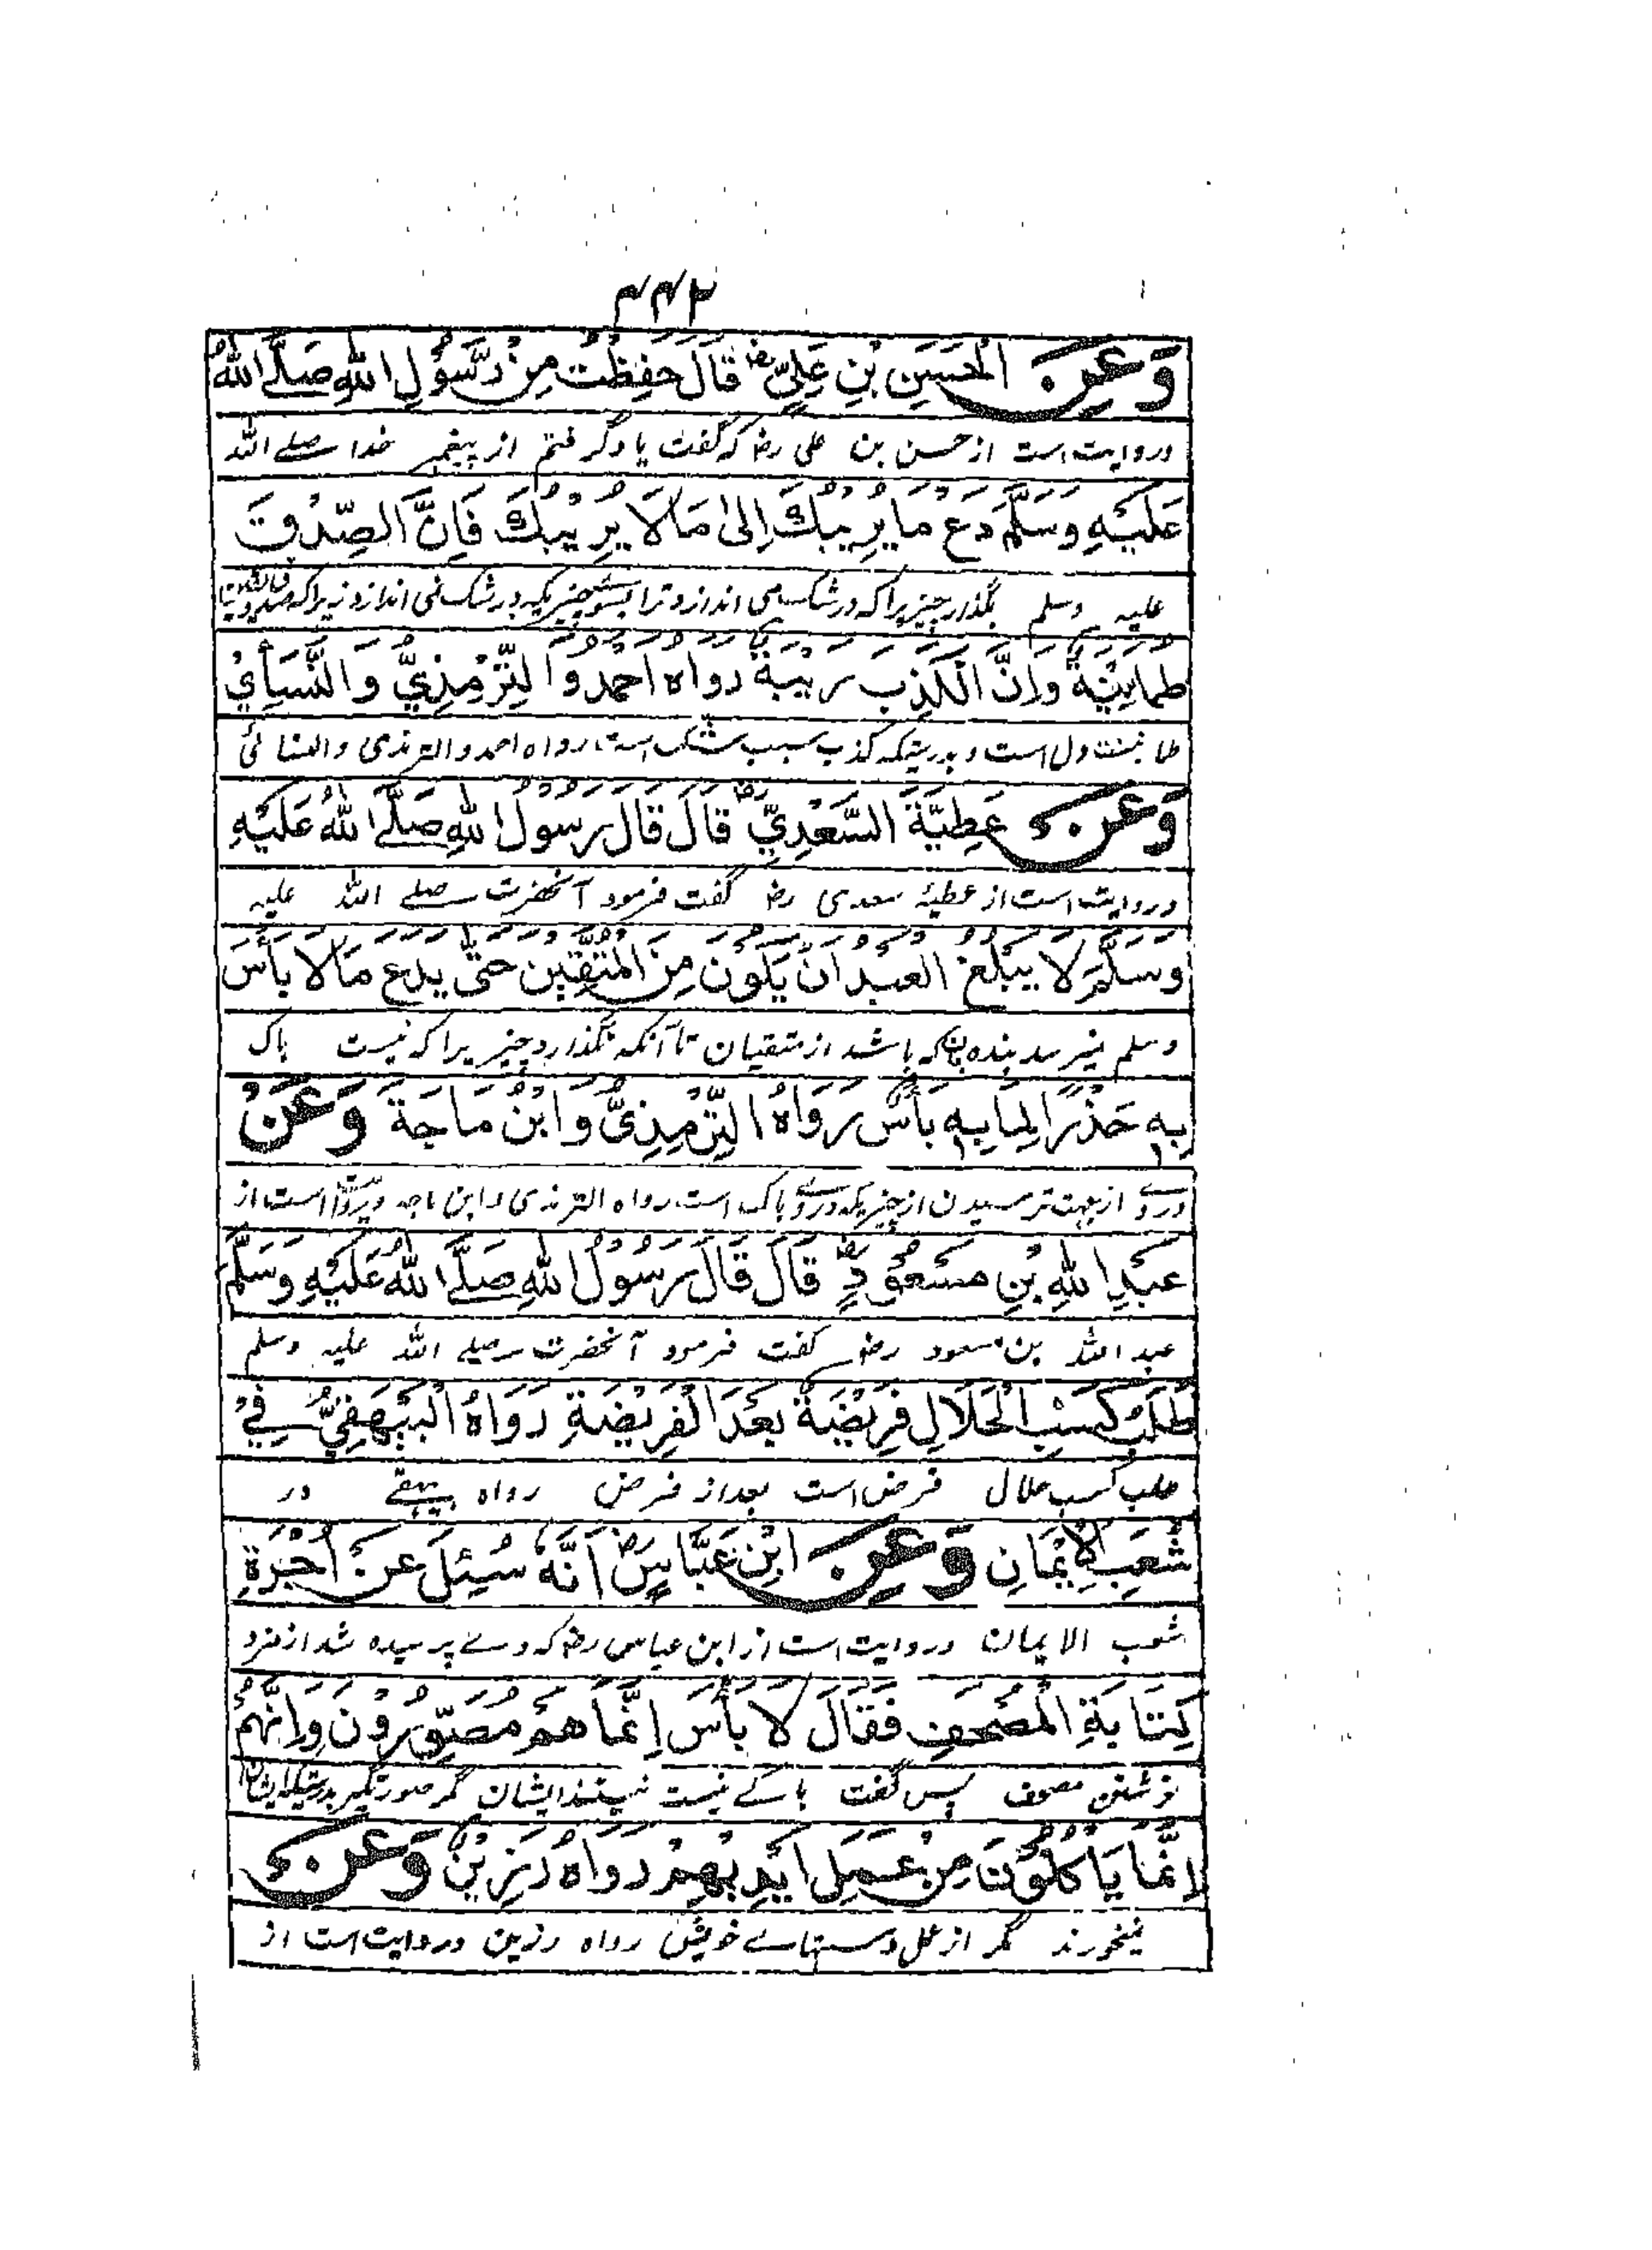 ۴۴۲
وَعَنِ الْحَسَنِ بْنِ عَلِيٍّ رض قَالَ حَفِظْتُ مِنْ رَّسُوْلِ اللهِ صَلَّے اللهُ
و روایت است از حسن بن علی رض که گفت یاد گرفتم از پیغمبر خدا صلے الله
عَلَيْهِ وَسَلَّمَ دَعْ مَا يُرِيْبُكَ اِلىٰ مَا لَا يُرِيْبُكَ فَاِنَّ الصِّدْقَ
علیه وسلم بگذار چیزیرا که در شک می اندازد ترا بسوے چیزیکه در شک نمی اندازد زیرا که صدق
طُمَانِيْنَةٌ وَاِنَّ الْكَذِبَ رِيْبَةٌ رواه احمد وَالتِّرْمِذِيُّ وَالنَّسَائِيُّ
طمانینت دل است و بدرستیکه کذب سبب شک است رواه احمد والترمذی والنسائی
وَعَنْ عَطِيَّةَ السَّعْدِيِّ رض قَالَ قَالَ رَسُوْلُ اللهِ صَلَّے اللهُ عَلَيْهِ
و روایت است از عطیۀ سعدی رض گفت فرمود آنحضرت صلے الله علیه
وَسَلَّمَ لَا يَبْلُغُ الْعَبْدُ اَنْ يَّكُوْنَ مِنَ الْمُتَّقِيْنَ حَتّٰى يَدَعَ مَا لَا بَأْسَ
وسلم نمیرسد بنده بآنکه باشد از متقیان تا آنکه بگذارد چیزیرا که نیست باک
بِهٖ حَذَرًا لِمَا بِهٖ بَأْسٌ رَوَاهُ التِّرْمِذِيُّ وَابْنُ مَاجَةَ وَعَنْ
دروے از جهت ترسیدن از چیزیکه دروے باک است رواه الترمذی وابن ماجه و روایت است از
عَبْدِ اللهِ بْنِ مَسْعُوْدٍ رض قَالَ قَالَ رَسُوْلُ اللهِ صَلَّے اللهُ عَلَيْهِ وَسَلَّمَ
عبد الله بن مسعود رض گفت فرمود آنحضرت صلے الله علیه وسلم
طَلَبُ كَسْبِ الْحَلَالِ فَرِيْضَةٌ بَعْدَ الْفَرِيْضَةِ رَوَاهُ الْبَيْهَقِيُّ فِيْ
طلب کسب حلال فرض است بعد از فرض رواه بیهقے در
شُعَبِ الْاِيْمَانِ وَعَنِ ابْنِ عَبَّاسٍ رض اَنَّهٗ سُئِلَ عَنْ اُجْرَةِ
شعب الایمان و روایت است از ابن عباس رض که وے پرسیده شد از مزد
كِتَابَةِ الْمُصْحَفِ فَقَالَ لَا بَأْسَ اِنَّمَا هُمْ مُصَوِّرُوْنَ وَاِنَّهُمْ
نوشتن مصحف پس گفت باکے نیست نیستند ایشان مگر صورتگر بدرستیکه ایشان
اِنَّمَا يَاْكُلُوْنَ مِنْ عَمَلِ اَيْدِيْهِمْ رواه رَزِيْنٌ وَعَنْ
نمیخورند مگر از عمل دستہاے خویش رواه رزین و روایت است از